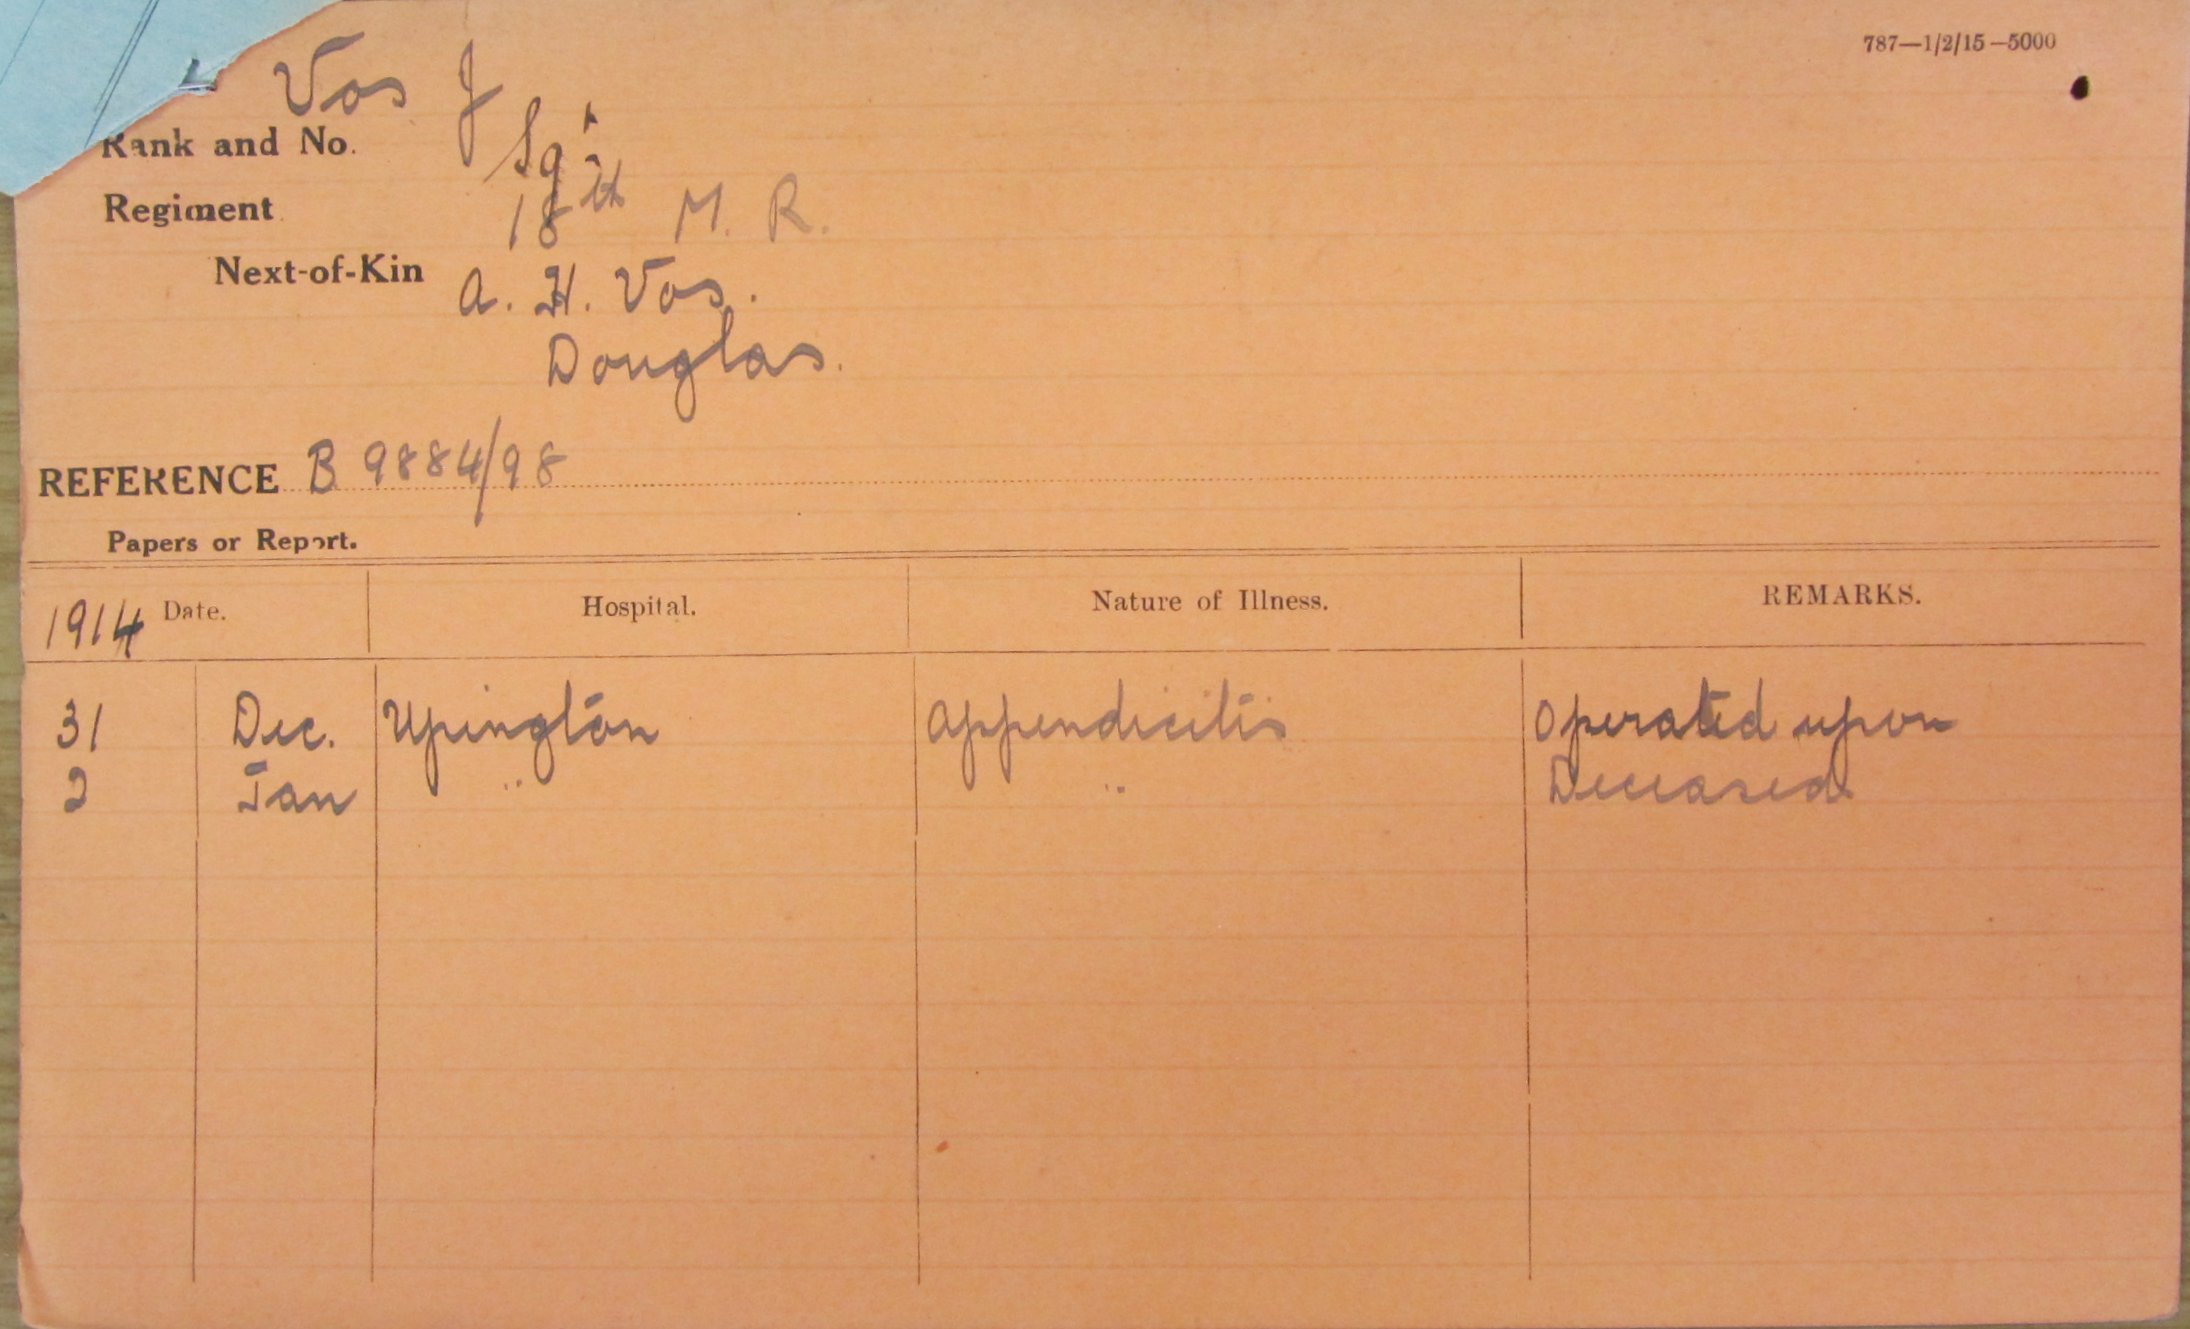 787—1/2/15—5000
Vos J
Rank and No. Sgt
Regiment 18th M. R.
Next-of-Kin A. H. Vos.
Douglas.
REFERENCE B 9884/98
Papers or Report.
1914 Date. Hospital. Nature of Illness. REMARKS.
31 Dec. Upington Appendicitis Operated upon
2 Jan " " Deceased